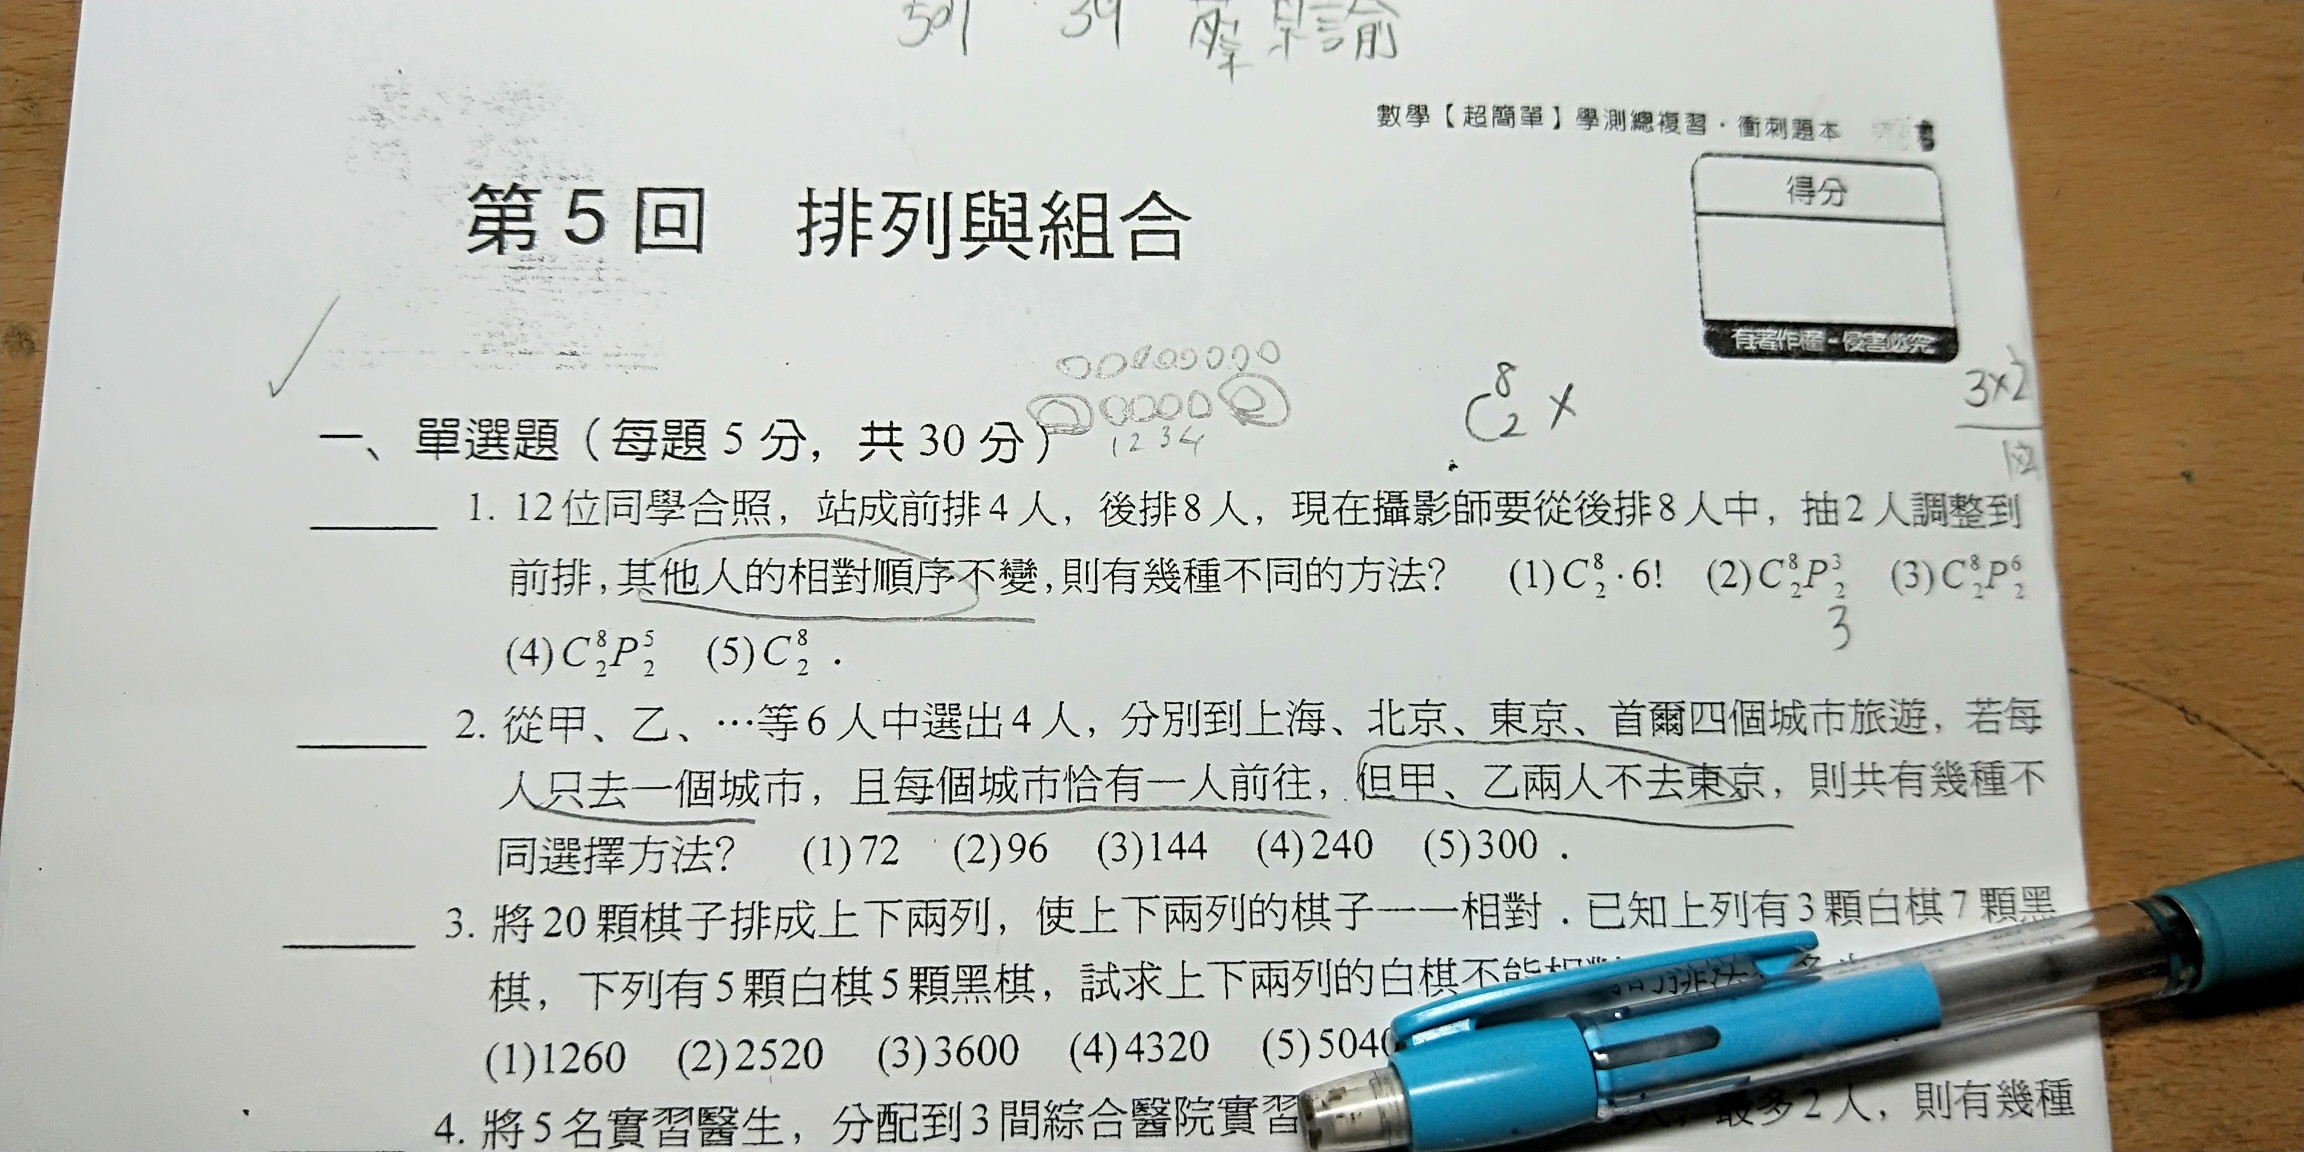 501 39
數學【超簡單】學測總複習・衝刺題本
第5回 排列與組合
得分
有著作權・侵害必究
一、單選題（每題5分，共30分）
1 2 3 4
C⁸₂ ×
3×2
1. 12位同學合照，站成前排4人，後排8人，現在攝影師要從後排8人中，抽2人調整到
前排，其他人的相對順序不變，則有幾種不同的方法？ (1)C⁸₂·6! (2)C⁸₂P³₂ (3)C⁸₂P⁶₂
3
(4)C⁸₂P⁵₂ (5)C⁸₂．
2. 從甲、乙、…等6人中選出4人，分別到上海、北京、東京、首爾四個城市旅遊，若每
人只去一個城市，且每個城市恰有一人前往，但甲、乙兩人不去東京，則共有幾種不
同選擇方法？ (1)72 (2)96 (3)144 (4)240 (5)300．
3. 將20顆棋子排成上下兩列，使上下兩列的棋子一一相對．已知上列有3顆白棋7顆黑
棋，下列有5顆白棋5顆黑棋，試求上下兩列的白棋不能
(1)1260 (2)2520 (3)3600 (4)4320 (5)504
4. 將5名實習醫生，分配到3間綜合醫院實習 人，最多2人，則有幾種